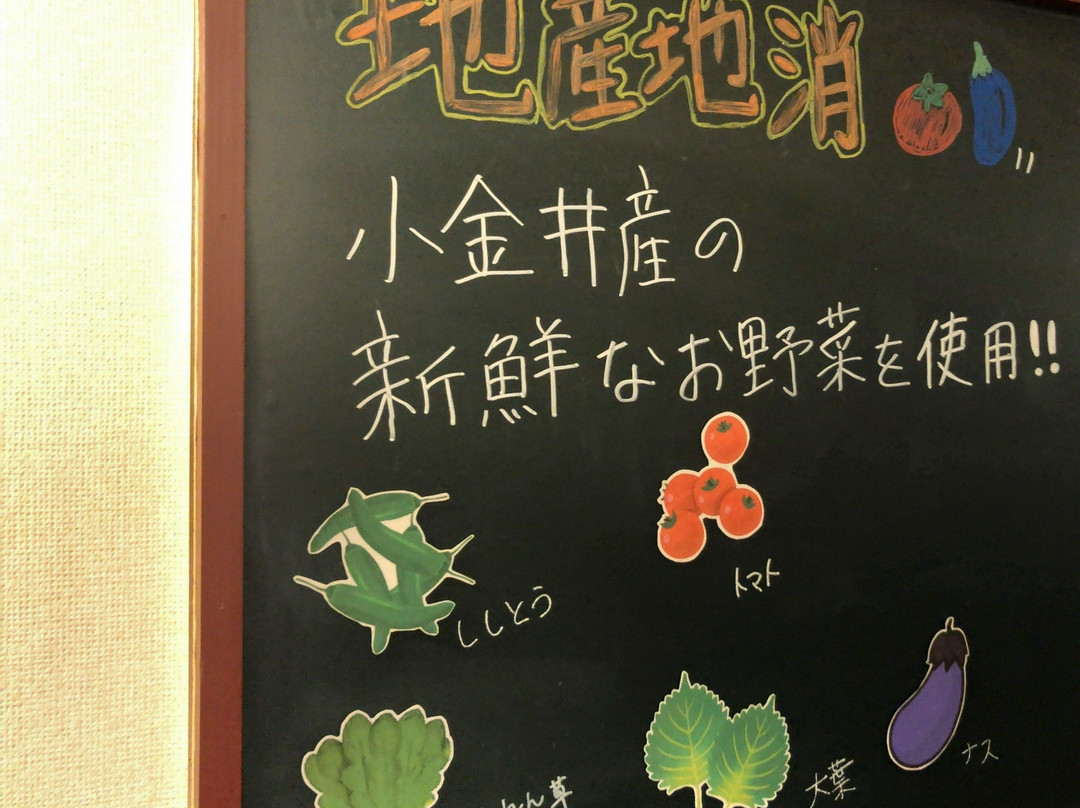 地産地消
小金井産の
新鮮なお野菜を使用!!
ししとう
トマト
ナス
大葉
ん草